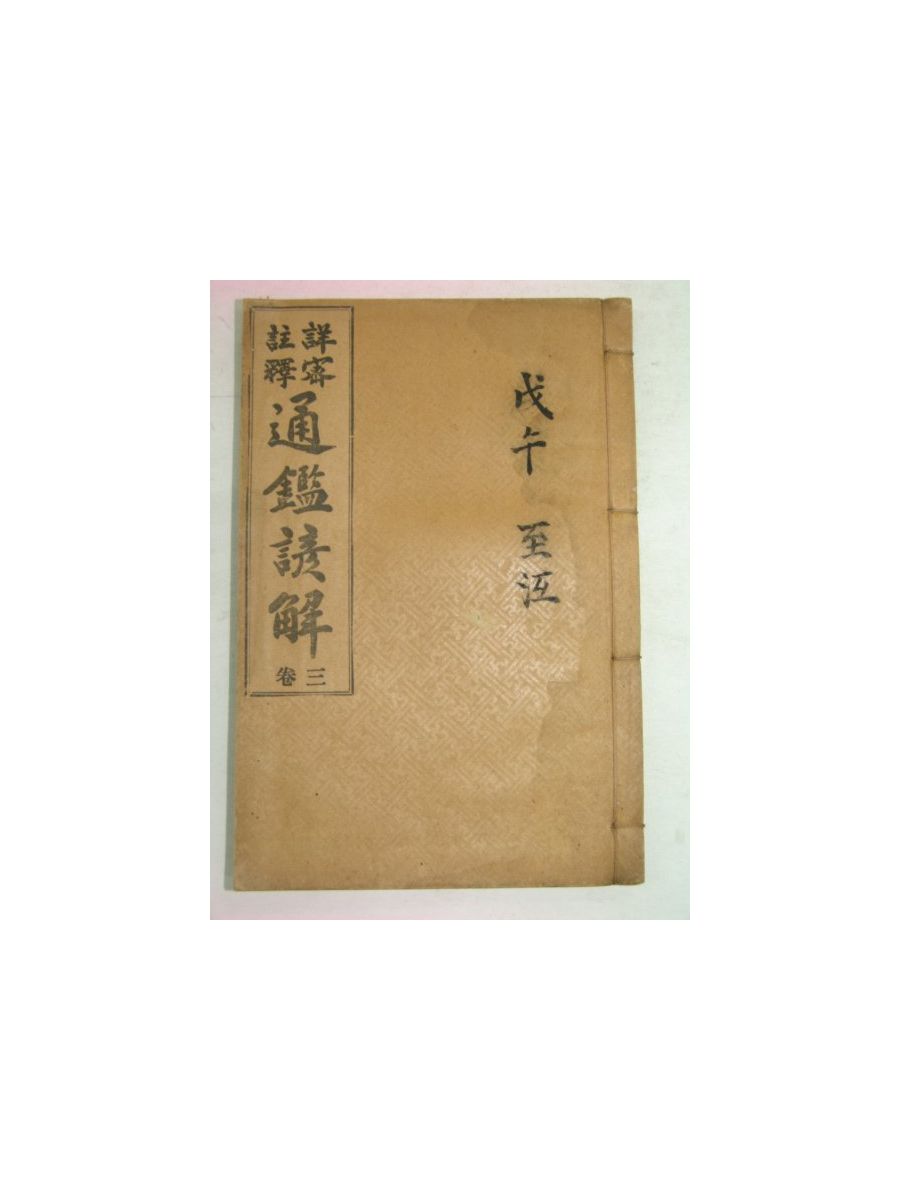 戊午 至沍
詳密
註釋
通鑑諺解
卷三